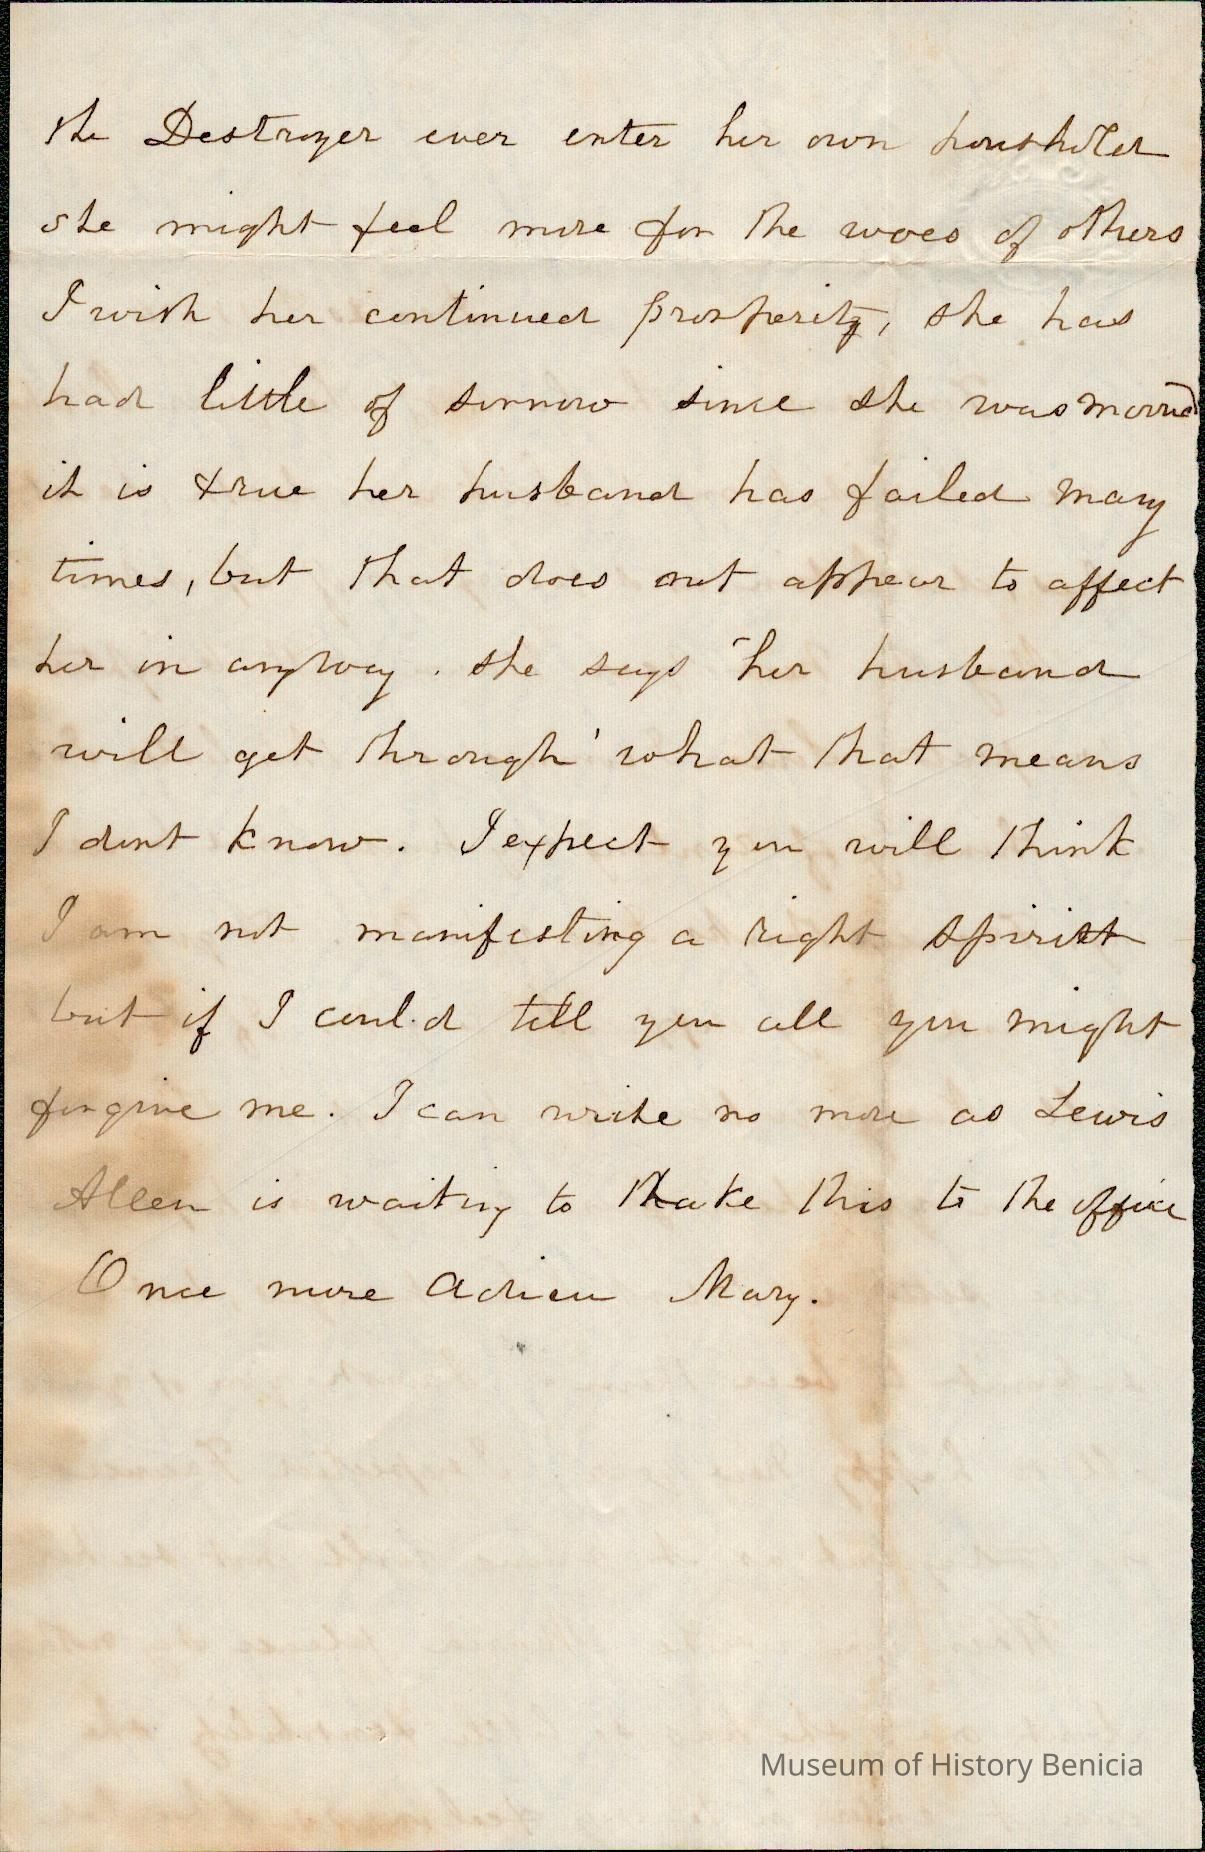 the Destroyer ever enter her own houshold
she might feel more for the woes of others
I wish her continued prosperity, she has
had little of sorrow since she was married
it is true her husband has failed many
times, but that does not appear to affect
her in anyway. she says "her husband
will get through' what that means
I dont know. I expect you will think
I am not manifesting a right spiritt
but if I could tell you all you might
forgive me. I can write no more as Lewis
Allen is waiting to thake this to the office
Once more Adieu Mary.
Museum of History Benicia